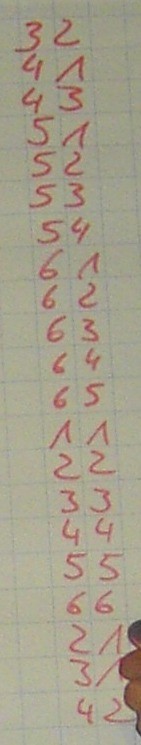 3 2
4 1
4 3
5 1
5 2
5 3
5 4
6 1
6 2
6 3
6 4
6 5
1 1
2 2
3 3
4 4
5 5
6 6
2 1
3 1
4 2